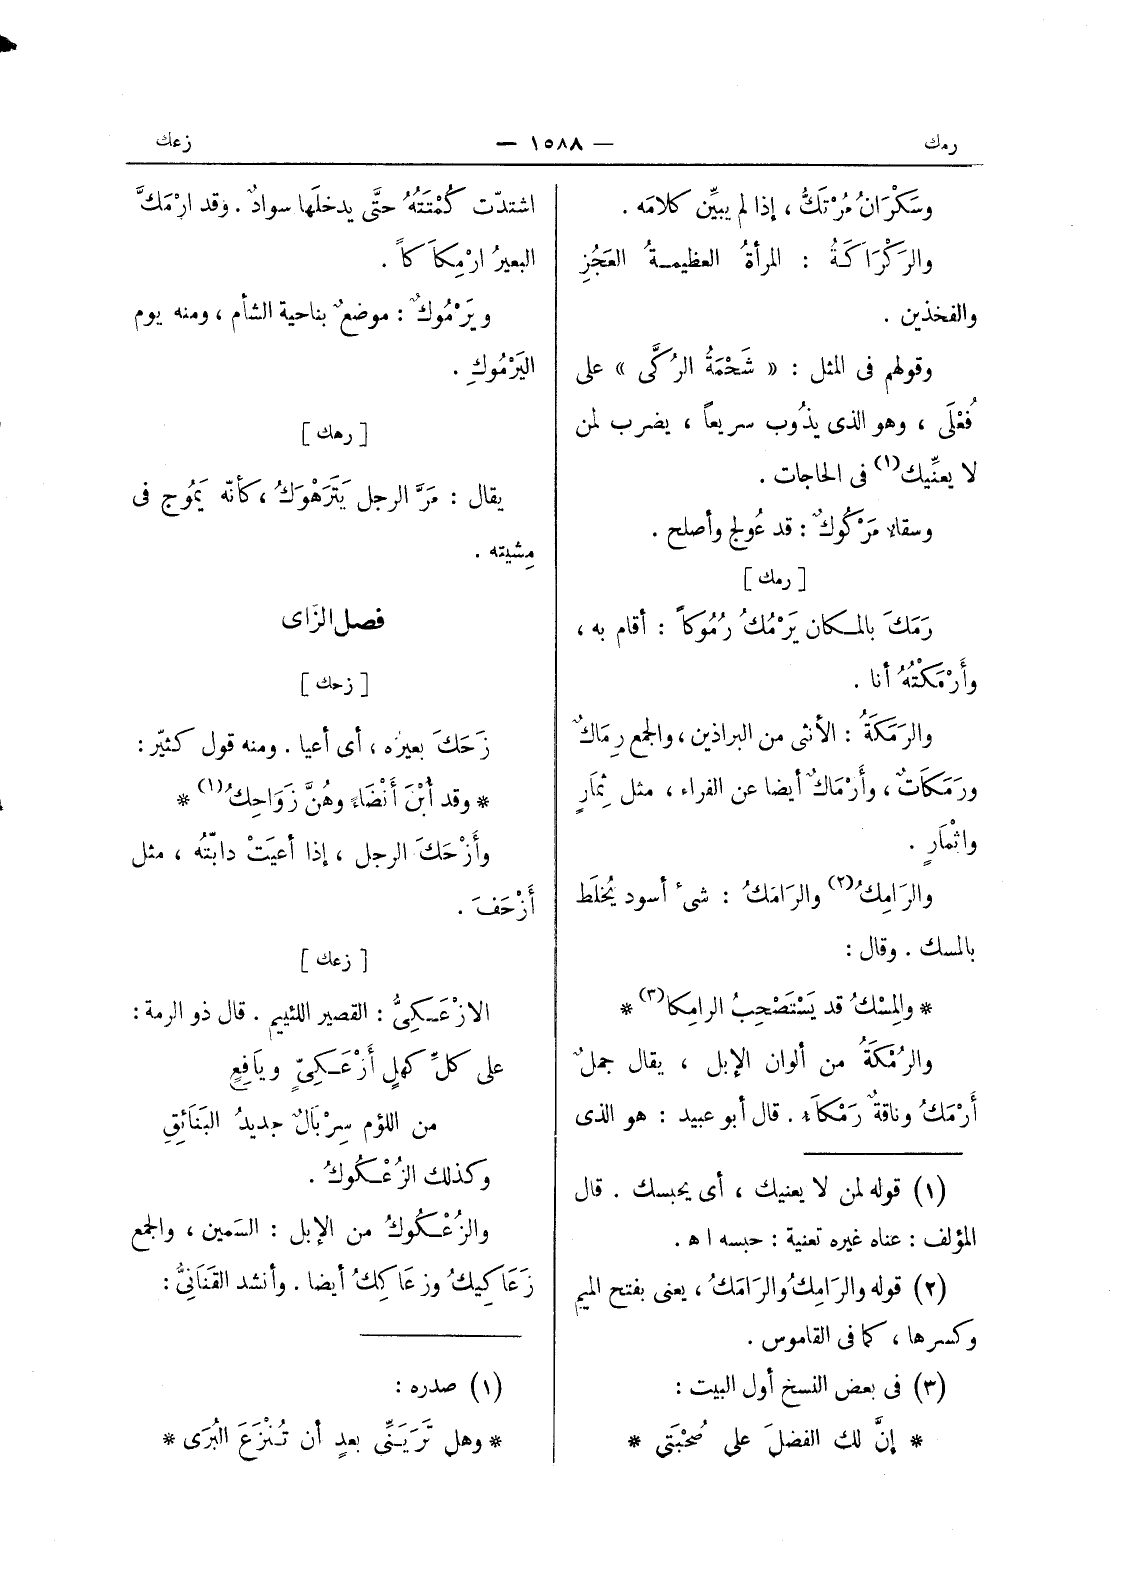 رمك — ١٥٨٨ — زعك
وسَكْرَانُ مُرْتَكٌّ ، إذا لم يبيِّن كلامَه .
والرَكْرَاكَةُ : المرأةُ العظيمـةُ العَجُزِ
والفخذين .
وقولهم فى المثل : « شَحْمَةُ الرُكَّى » على
فُعْلَى ، وهو الذى يذُوب سريعاً ، يضرب لمن
لا يعنِّيك (١) فى الحاجات .
وسقاء مَرْكُوكٌ : قد عُولج وأصلح .
[ رمك ]
رَمَكَ بالمـكان يَرْمُكُ رُمُوكاً : أقام به ،
وأَرْمَكْتُهُ أنا .
والرَمَكَةُ : الأنثى من البراذين ، والجمع رِمَاكٌ
ورَمَكَاتٌ ، وأَرْمَاكٌ أيضا عن الفراء ، مثل ثِمَارٍ
واثْمَارٍ .
والرَامِكُ (٢) والرَامَكُ : شىء أسود يُخلَط
بالمسك . وقال :
* والمِسْكُ قد يَسْتَصْحِبُ الرامِكا (٣) *
والرُمْكَةُ من ألوان الإبل ، يقال جملٌ
أَرْمَكُ وناقةٌ رَمْكَاء . قال أبو عبيد : هو الذى
(١) قوله لمن لا يعنيك ، أى يحبسك . قال
المؤلف : عناه غيره تعنية : حبسه اه .
(٢) قوله والرَامِكُ والرَامَكُ ، يعنى بفتح الميم
وكسرها ، كما فى القاموس .
(٣) فى بعض النسخ أول البيت :
* إنَّ لك الفضلَ على صُحْبَتَى *
اشتدّت كُمْتَتُهُ حتَّى يدخلَها سوادٌ . وقد ارْمَكَّ
البعيرُ ارْمِكاَكاً .
ويَرْمُوكٌ : موضعٌ بناحية الشأم ، ومنه يوم
اليَرْمُوكِ .
[ رهك ]
يقال : مَرَّ الرجل يَتَرَهْوَكُ ، كأنّه يَمُوج فى
مِشيته .
فصل الزَّاى
[ زحك ]
زَحَكَ بعيره ، أى أعيا . ومنه قول كثيّر :
* وقد أُبْنَ أَنْضَاءً وهُنَّ زَوَاحِكُ (١) *
وأَزْحَكَ الرجل ، إذا أعيَتْ دابّتُه ، مثل
أَزْحَفَ .
[ زعك ]
الازْعَـكِىُّ : القصير اللئيم . قال ذو الرمة :
على كلِّ كهلٍ أَزْعَـكِىّ ويَافِعٍ
من اللؤم سِرْبَالٌ جديدُ البَنَائِقِ
وكذلك الزُعْـكُوكُ .
والزُعْـكُوكُ من الإبل : السَمين ، والجمع
زَعَاكِيكُ وزعَاكِكُ أيضا . وأنشد القَنَانِىُّ :
(١) صدره :
* وهل تَرَيَنِّى بعد أن تُنْزَعَ البُرَى *